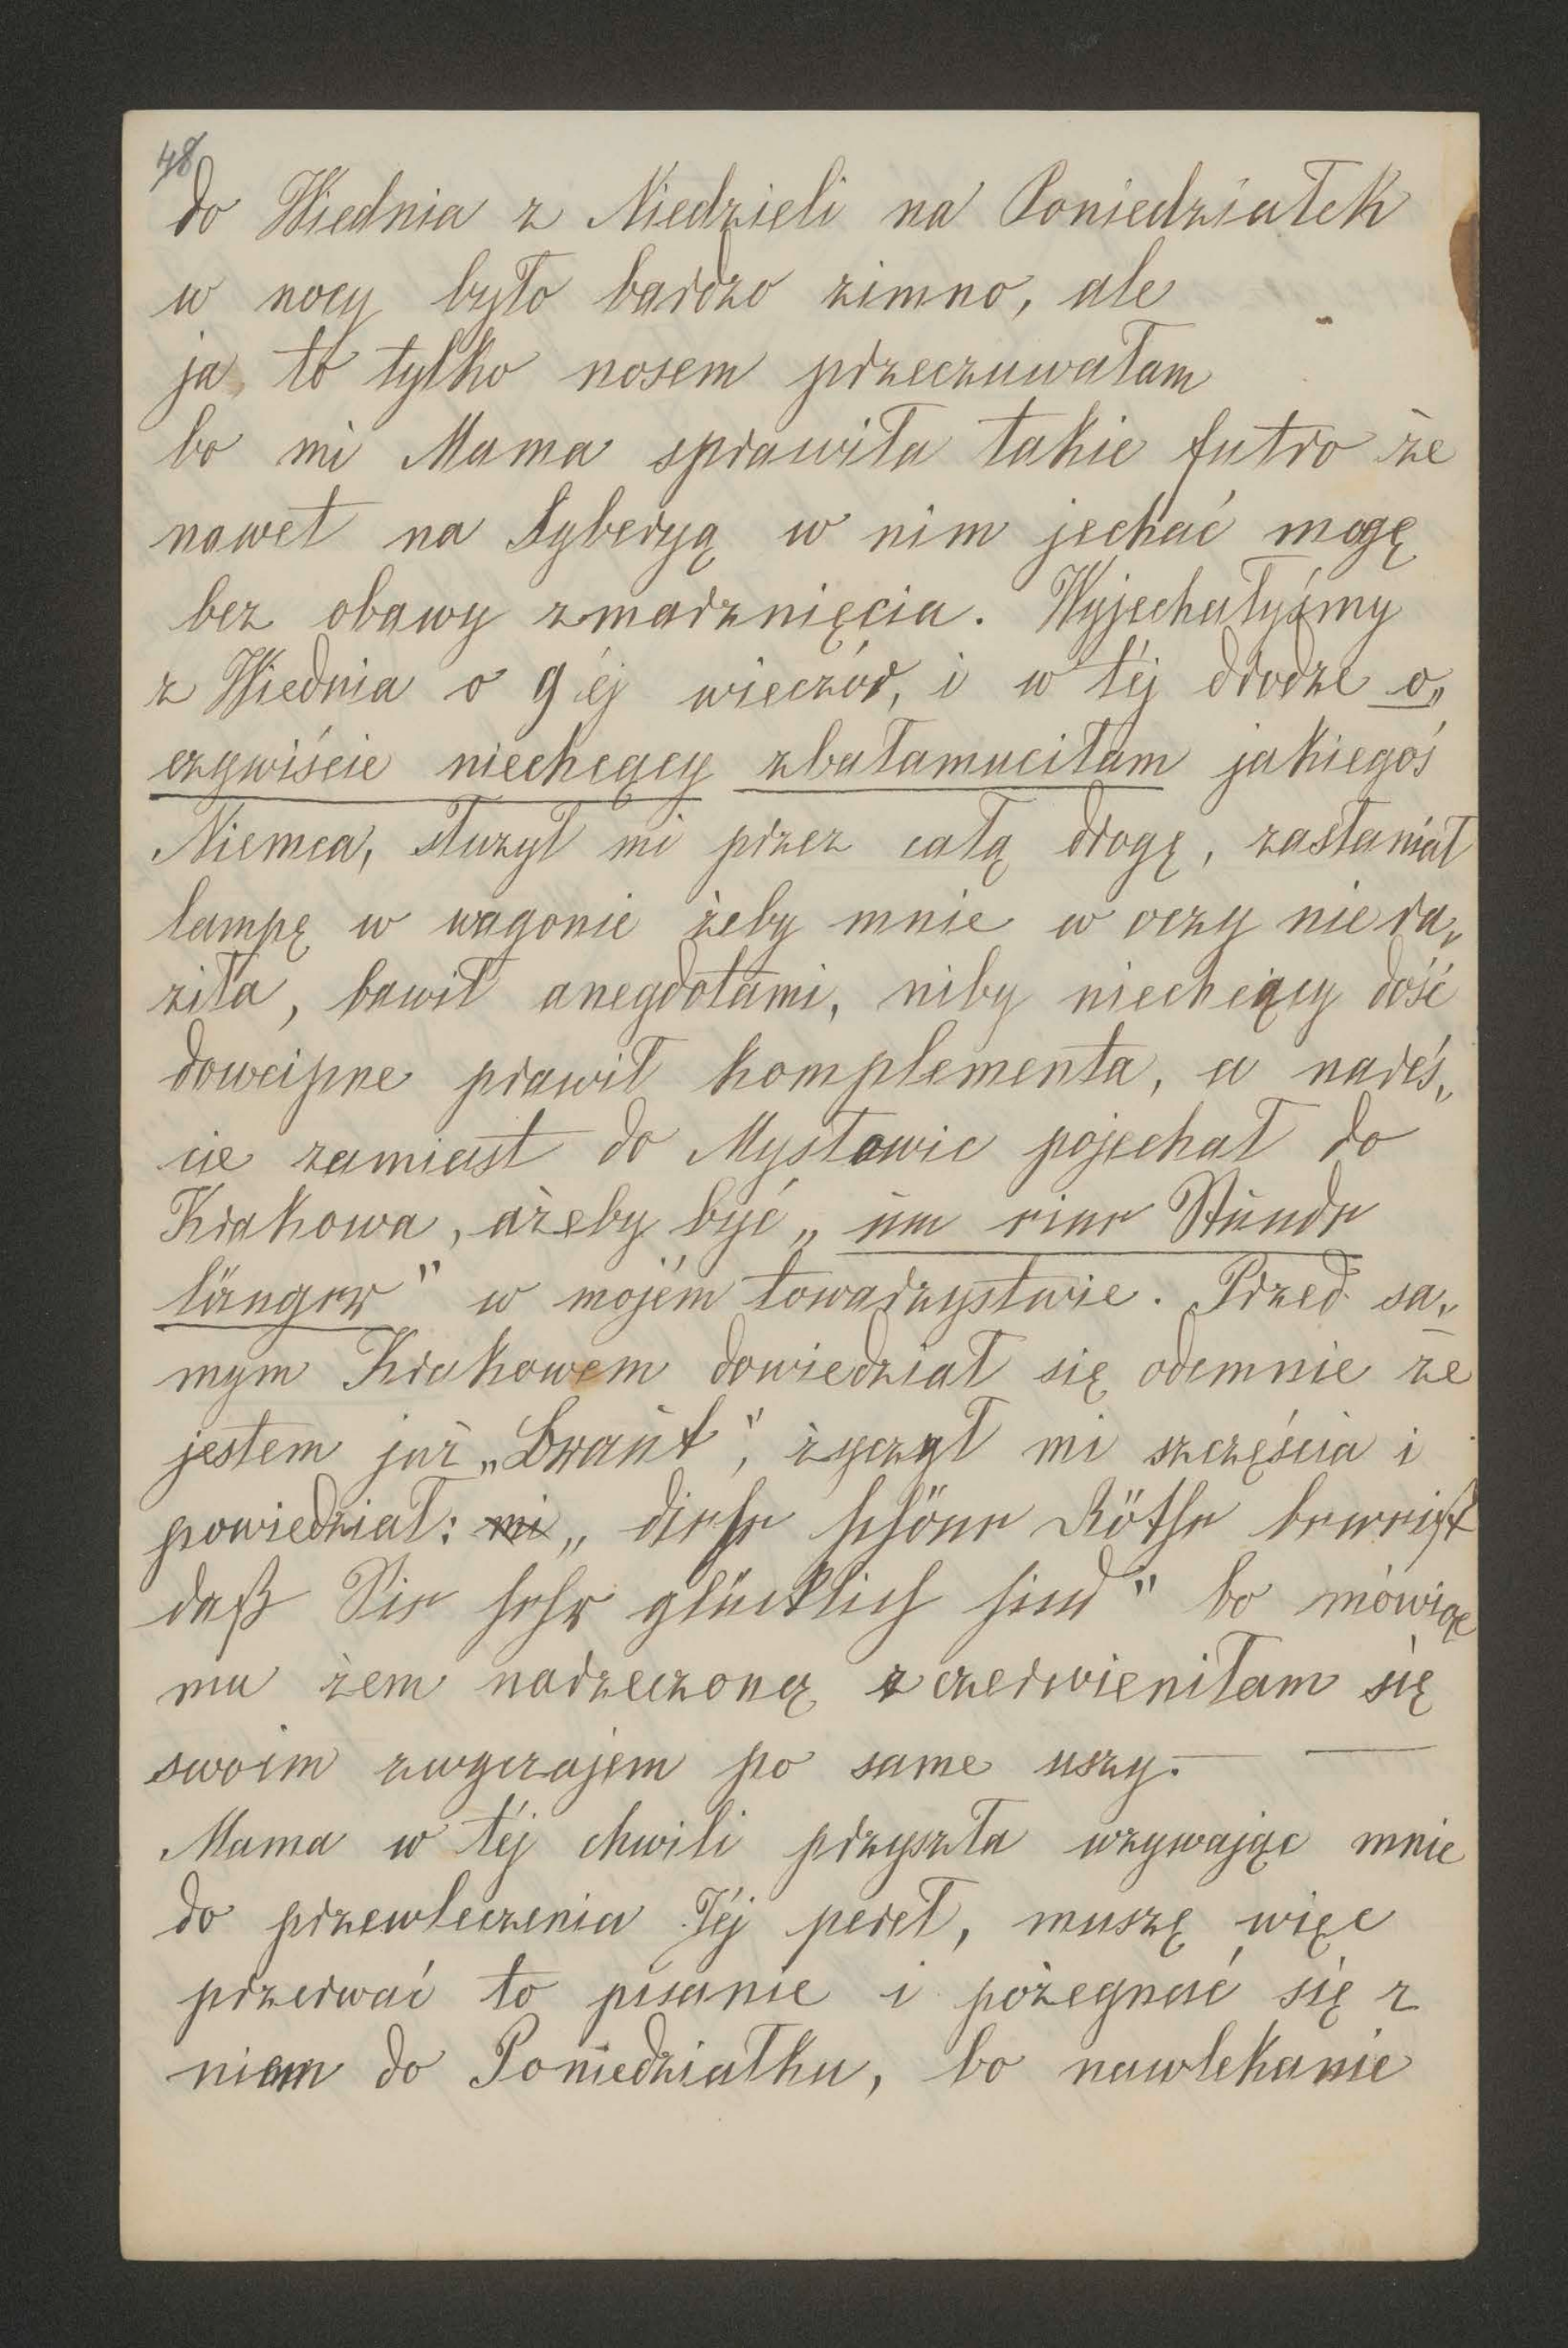 48
do Wiednia z Niedzieli na Poniedziałek
w nocy było bardzo zimno, ale
ja to tylko nosem przeczuwałam
bo mi Mama sprawiła takie futro że
nawet na Syberyą w nim jechać mogę
bez obawy zmarznięcia. Wyjechałyśmy
z Wiednia o 9 éj wieczór, i w téj drodze o„
czywiście niechcący zbałamuciłam jakiegoś
Niemca, służył mi przez całą drogę, zasłaniał
lampę w wagonie żeby mnie w oczy nie ra„
ziła, bawił anegdotami, niby niechcący dość
dowcipne prawił komplementa, a nareś„
cie zamiast do Mysłowic pojechał do
Krakowa, ażeby być „um eine Stunde
länger" w mojém towarzystwie. Przed sa„
mym Krakowem dowiedział się odemnie że
jestem już „Braut", życzył mi szczęścia i
powiedział: mi „diese schöne Röthe beweist
daß Sie sehr glücklich sind" bo mówiąc
mu żem narzeczoną zczerwieniłam się
swoim zwyczajem po same uszy. — —
Mama w téj chwili przyszła wzywając mnie
do przewleczenia Jéj pereł, muszę więc
przerwać to pisanie i pożegnać się z
niem do Poniedziałku, bo nawlekanie